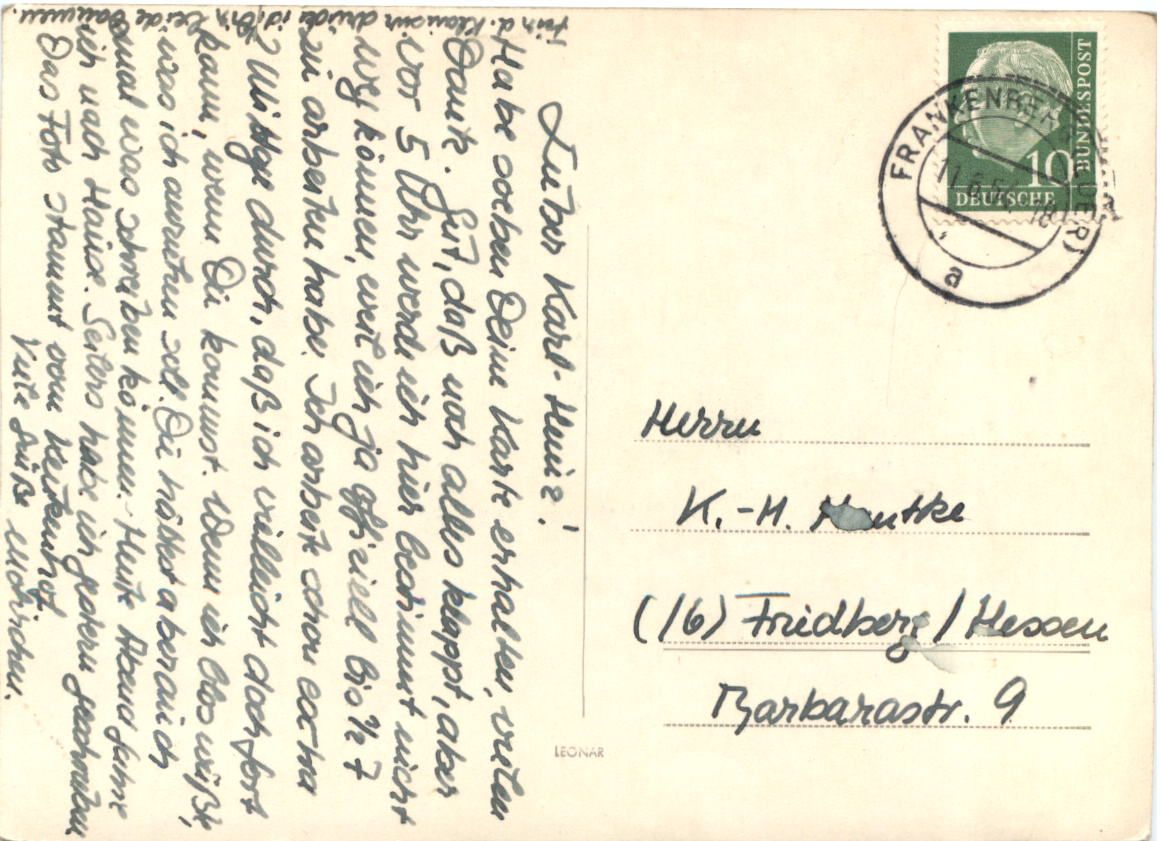 Lieber Karl-Heinz!
Habe soeben Deine Karte erhalten, vielen
Dank. Gut, daß noch alles klappt, aber
vor 5 Uhr werde ich hier bestimmt nicht
weg können, weil ich ja offiziell bis ½ 7
zu arbeiten habe. Ich arbeite schon extra
2 Mittage durch, daß ich vielleicht doch fort
kann, wenn Du kommst. Wenn ich blos wüßte,
was ich anziehen soll. Du hättest aber auch
mal was schreiben können. Heute Abend fahre
ich nach Hause. Seilers habe ich gestern geschrieben
Das Foto stammt vom
Viele Grüße
Für d. Klausur drücke ich Dir beide Daumen.
DEUTSCHE
BUNDESPOST
10
FRANKENBERG
a
Herrn
K.-H.
(16) Friedberg / Hessen
Barbarastr. 9
LEONAR